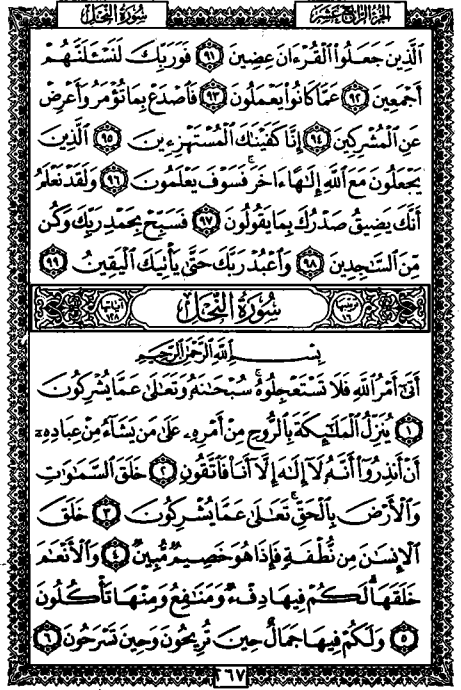 الجزء الرابع عشر
سورة النحل
الَّذِينَ جَعَلُوا الْقُرْءَانَ عِضِينَ ٩١ فَوَرَبِّكَ لَنَسْـَٔلَنَّهُمْ
أَجْمَعِينَ ٩٢ عَمَّا كَانُوا يَعْمَلُونَ ٩٣ فَاصْدَعْ بِمَا تُؤْمَرُ وَأَعْرِضْ
عَنِ الْمُشْرِكِينَ ٩٤ إِنَّا كَفَيْنَاكَ الْمُسْتَهْزِءِينَ ٩٥ الَّذِينَ
يَجْعَلُونَ مَعَ اللَّهِ إِلَٰهًا ءَاخَرَ ۚ فَسَوْفَ يَعْلَمُونَ ٩٦ وَلَقَدْ نَعْلَمُ
أَنَّكَ يَضِيقُ صَدْرُكَ بِمَا يَقُولُونَ ٩٧ فَسَبِّحْ بِحَمْدِ رَبِّكَ وَكُن
مِّنَ السَّاجِدِينَ ٩٨ وَاعْبُدْ رَبَّكَ حَتَّىٰ يَأْتِيَكَ الْيَقِينُ ٩٩
ترتيبها ١٦ سُورَةُ النَّحْلِ آياتها ١٢٨
بِسْمِ اللَّهِ الرَّحْمَٰنِ الرَّحِيمِ
أَتَىٰٓ أَمْرُ اللَّهِ فَلَا تَسْتَعْجِلُوهُ ۚ سُبْحَانَهُ وَتَعَالَىٰ عَمَّا يُشْرِكُونَ
١ يُنَزِّلُ الْمَلَٰٓئِكَةَ بِالرُّوحِ مِنْ أَمْرِهِ عَلَىٰ مَن يَشَآءُ مِنْ عِبَادِهِۦٓ
أَنْ أَنذِرُوٓا أَنَّهُ لَآ إِلَٰهَ إِلَّآ أَنَا فَاتَّقُونِ ٢ خَلَقَ السَّمَٰوَاتِ
وَالْأَرْضَ بِالْحَقِّ ۚ تَعَالَىٰ عَمَّا يُشْرِكُونَ ٣ خَلَقَ
الْإِنسَانَ مِن نُّطْفَةٍ فَإِذَا هُوَ خَصِيمٌ مُّبِينٌ ٤ وَالْأَنْعَٰمَ
خَلَقَهَا ۗ لَكُمْ فِيهَا دِفْءٌ وَمَنَٰفِعُ وَمِنْهَا تَأْكُلُونَ
٥ وَلَكُمْ فِيهَا جَمَالٌ حِينَ تُرِيحُونَ وَحِينَ تَسْرَحُونَ ٦
٢٦٧